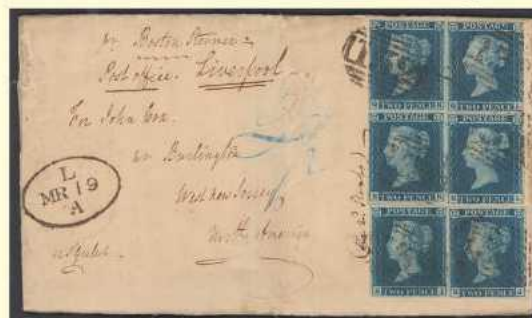 pr Boston Steamer
Post office. Liverpool
For John Cox.
nr Burlington
West new Jersey
North America
L
MR 19
A
POSTAGE
TWO PENCE
POSTAGE
TWO PENCE
POSTAGE
TWO PENCE
POSTAGE
TWO PENCE
POSTAGE
TWO PENCE
POSTAGE
TWO PENCE